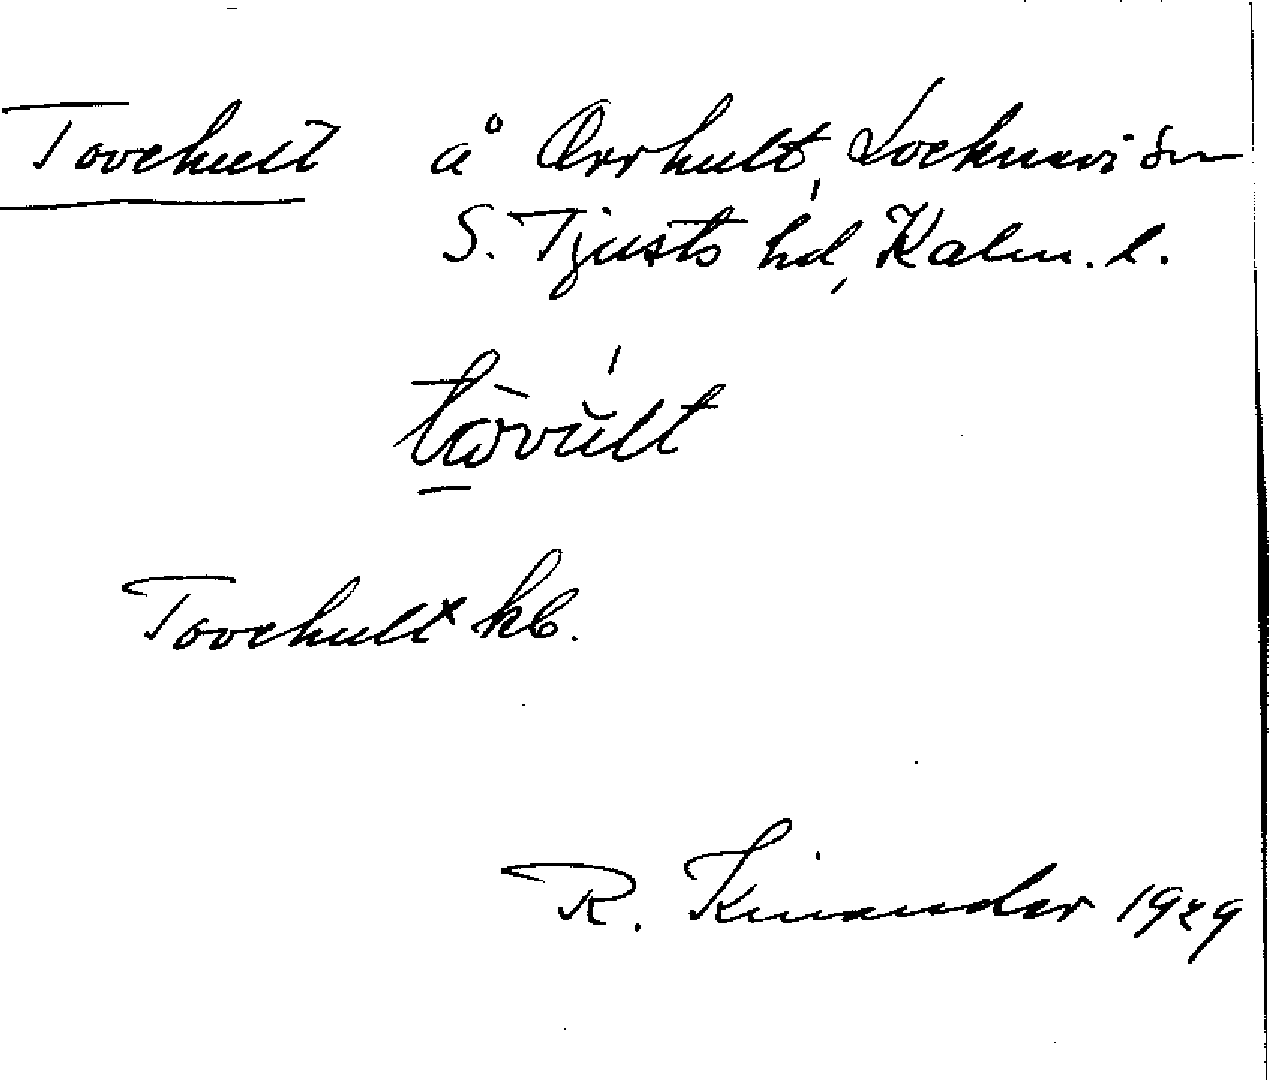 Tovehult å Orrhult, Locknevi sn
S. Tjusts hd, Kalm. l.
tòvŭlt
Tovehult x kb.
R. Kinander 1929